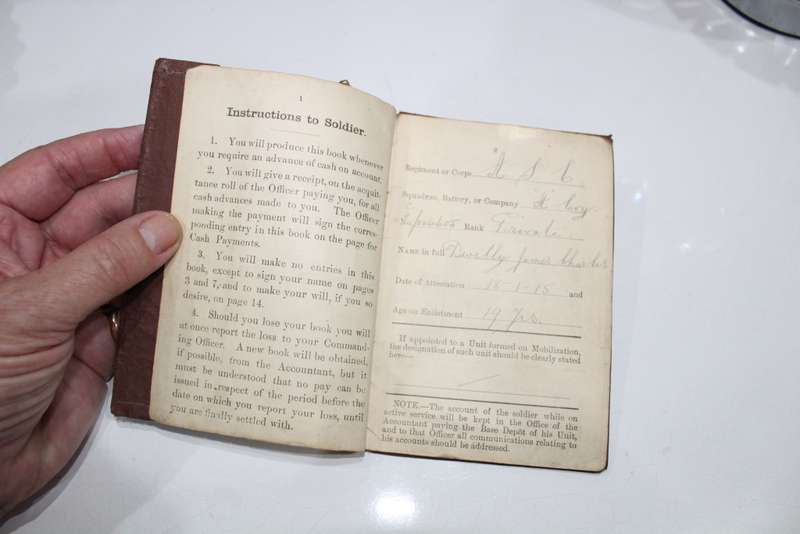 1
Instructions to Soldier.
1. You will produce this book whenever
you require an advance of cash on account.
2. You will give a receipt, on the acquit-
tance roll of the Officer paying you, for all
cash advances made to you. The Officer
making the payment will sign the corres-
ponding entry in this book on the page for
Cash Payments.
3. You will make no entries in this
book, except to sign your name on pages
3 and 7, and to make your will, if you so
desire, on page 14.
4. Should you lose your book you will
at once report the loss to your Command-
ing Officer. A new book will be obtained,
if possible, from the Accountant, but it
must be understood that no pay can be
issued in respect of the period before the
date on which you report your loss, until
you are finally settled with.
Regiment or Corps A S C
Squadron, Battery, or Company H Coy
Rank Private
Name in full James Charles
Date of Attestation 18-1-15 and
Age on Enlistment 19 Yrs.
If appointed to a Unit formed on Mobilization,
the designation of such unit should be clearly stated
here—
NOTE.—The account of the soldier while on
active service will be kept in the Office of the
Accountant paying the Base Depôt of his Unit,
and to that Officer all communications relating to
his accounts should be addressed.